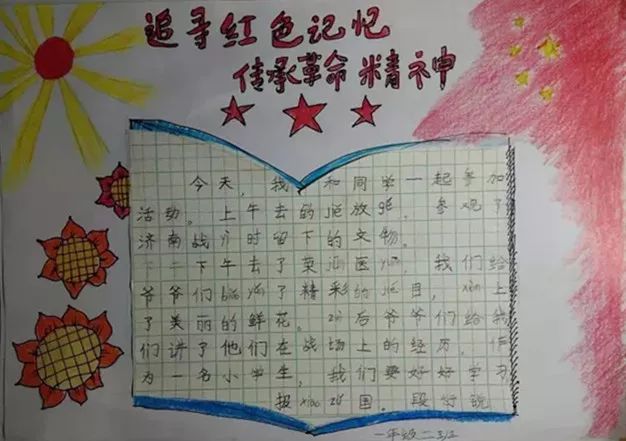 追寻红色记忆
传承革命精神
今天，我和同学一起参加
活动。上午去的jie放阁，参观了
济南战yi时留下的文物。
下午去了荣jun医yuàn，我们给
爷爷们biǎo yǎn了精彩的jie目，xiàn上
了美丽的鲜花。zuì后爷爷们给我
们讲了他们在战场上的经历，作
为一名小学生，我们要好好学习
报xiao zǔ国。段行锐
一年级二